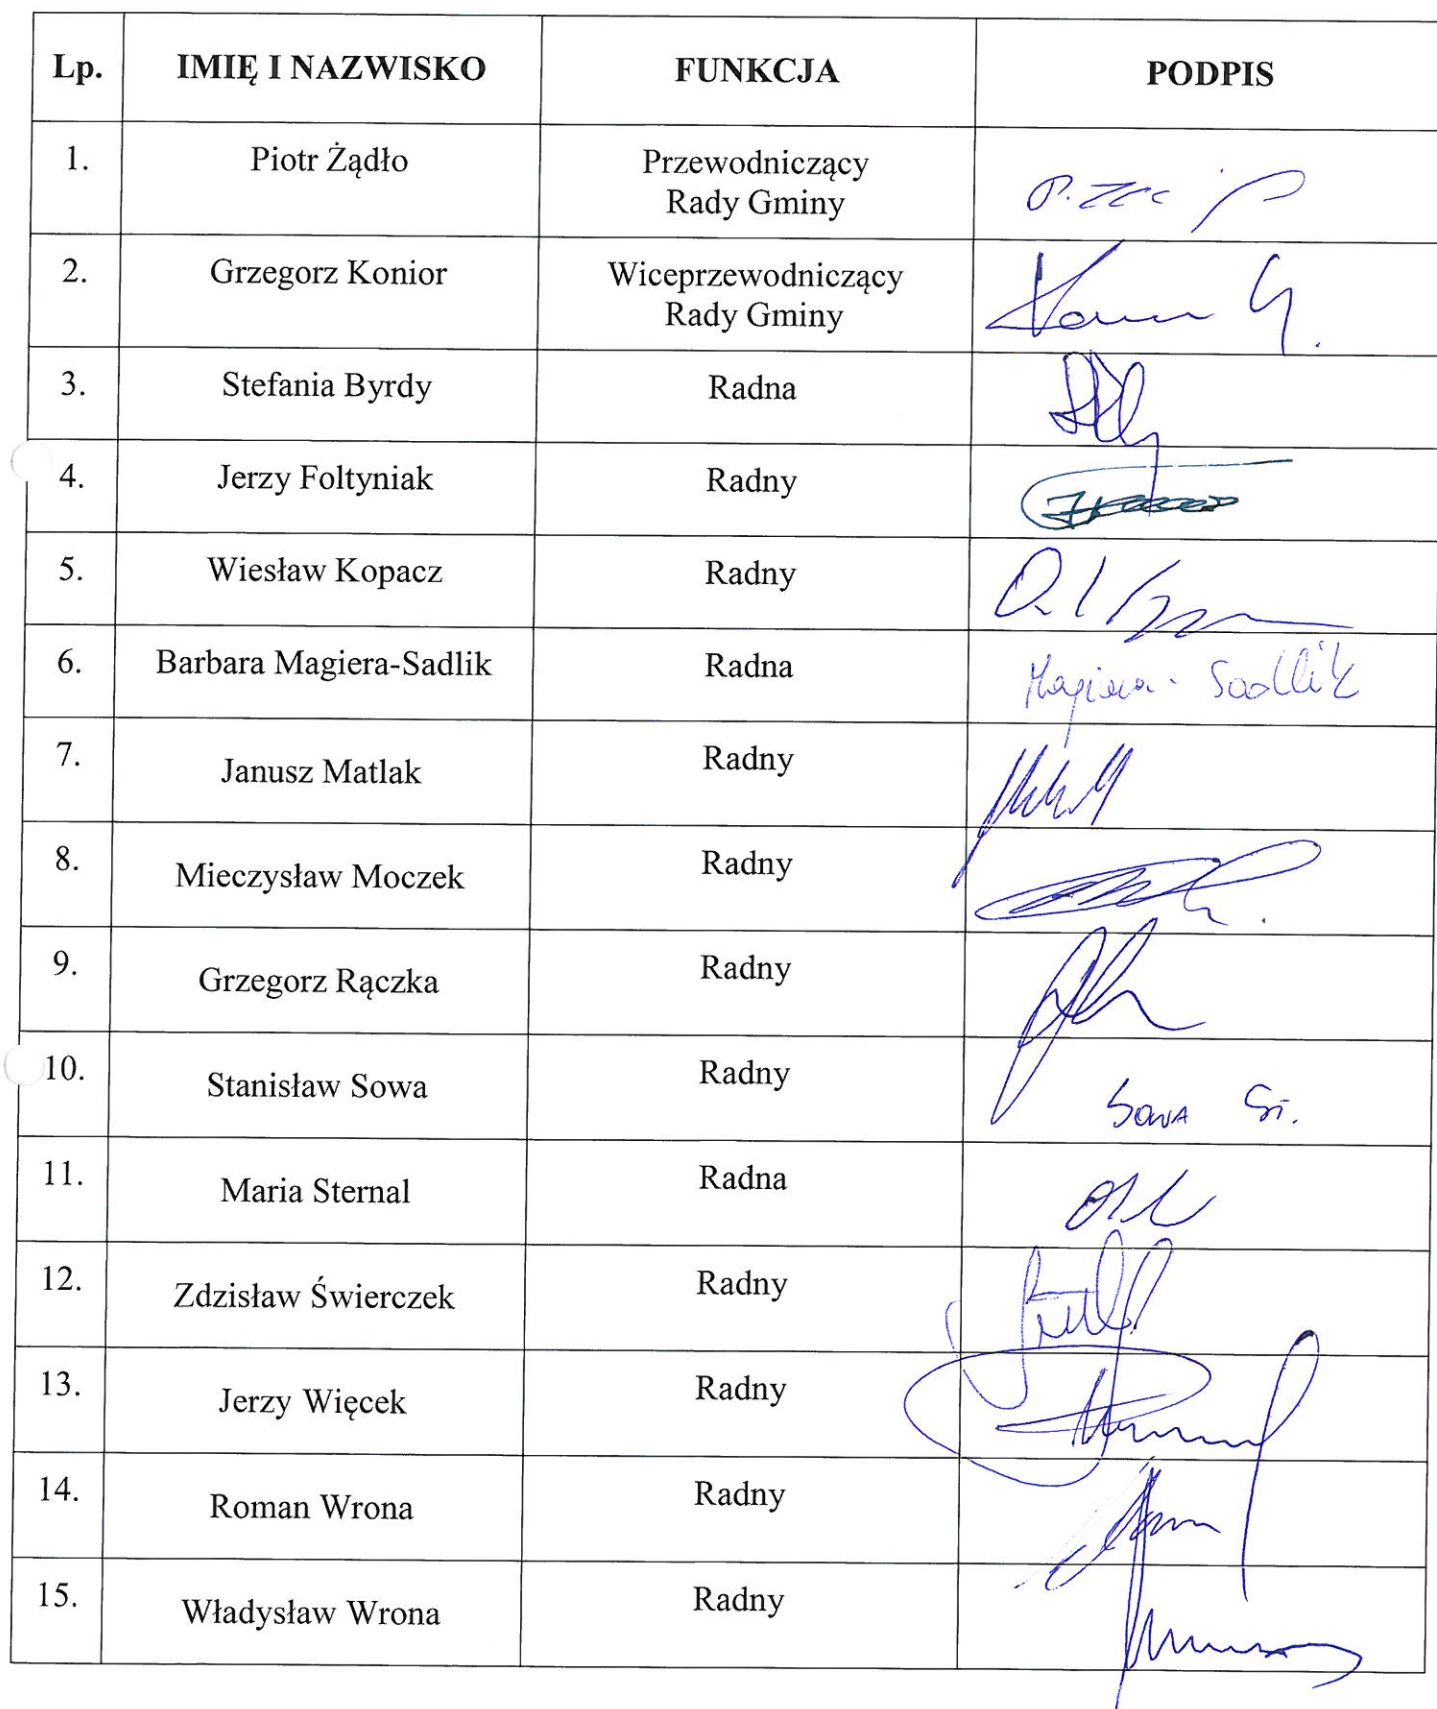 Lp. IMIĘ I NAZWISKO FUNKCJA PODPIS
1. Piotr Żądło Przewodniczący
Rady Gminy
2. Grzegorz Konior Wiceprzewodniczący
Rady Gminy
3. Stefania Byrdy Radna
4. Jerzy Foltyniak Radny
5. Wiesław Kopacz Radny
6. Barbara Magiera-Sadlik Radna Magiera-Sadlik
7. Janusz Matlak Radny
8. Mieczysław Moczek Radny
9. Grzegorz Rączka Radny
10. Stanisław Sowa Radny Sowa St.
11. Maria Sternal Radna
12. Zdzisław Świerczek Radny
13. Jerzy Więcek Radny
14. Roman Wrona Radny
15. Władysław Wrona Radny